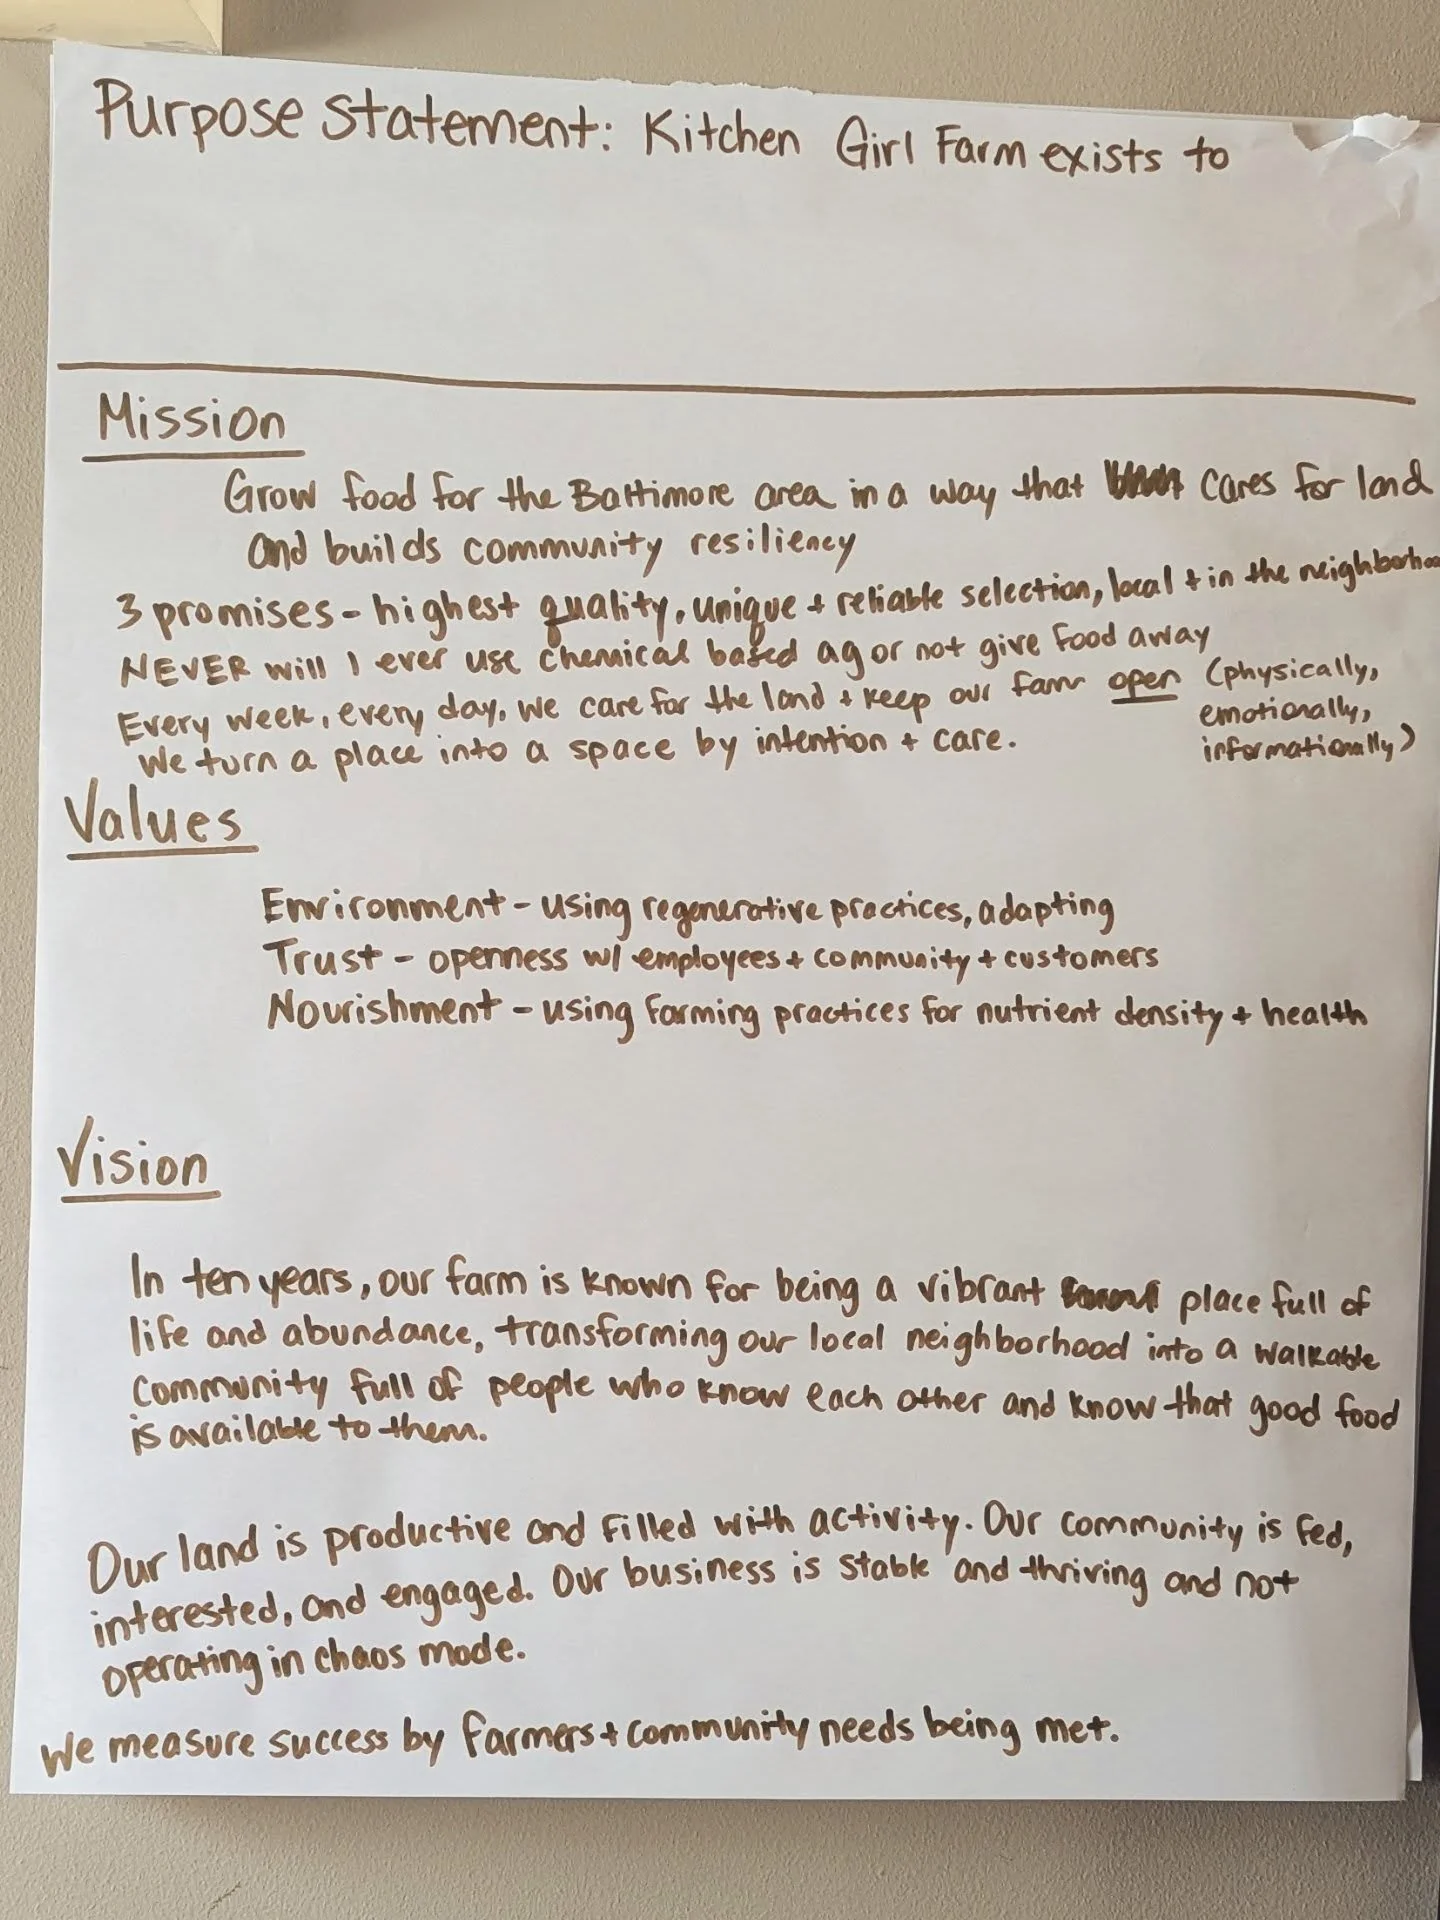 Purpose Statement: Kitchen Girl Farm exists to
Mission
Grow food for the Baltimore area in a way that cares for land
and builds community resiliency
3 promises - highest quality, unique + reliable selection, local + in the neighborhoo
NEVER will I ever use chemical based ag or not give food away
Every week, every day, we care for the land + keep our farm open (physically,
emotionally,
informationally)
We turn a place into a space by intention + care.
Values
Environment - using regenerative practices, adapting
Trust - openness w/ employees + community + customers
Nourishment - using farming practices for nutrient density + health
Vision
In ten years, our farm is known for being a vibrant place full of
life and abundance, transforming our local neighborhood into a walkable
community full of people who know each other and know that good food
is available to them.
Our land is productive and filled with activity. Our community is fed,
interested, and engaged. Our business is stable and thriving and not
operating in chaos mode.
We measure success by farmers + community needs being met.